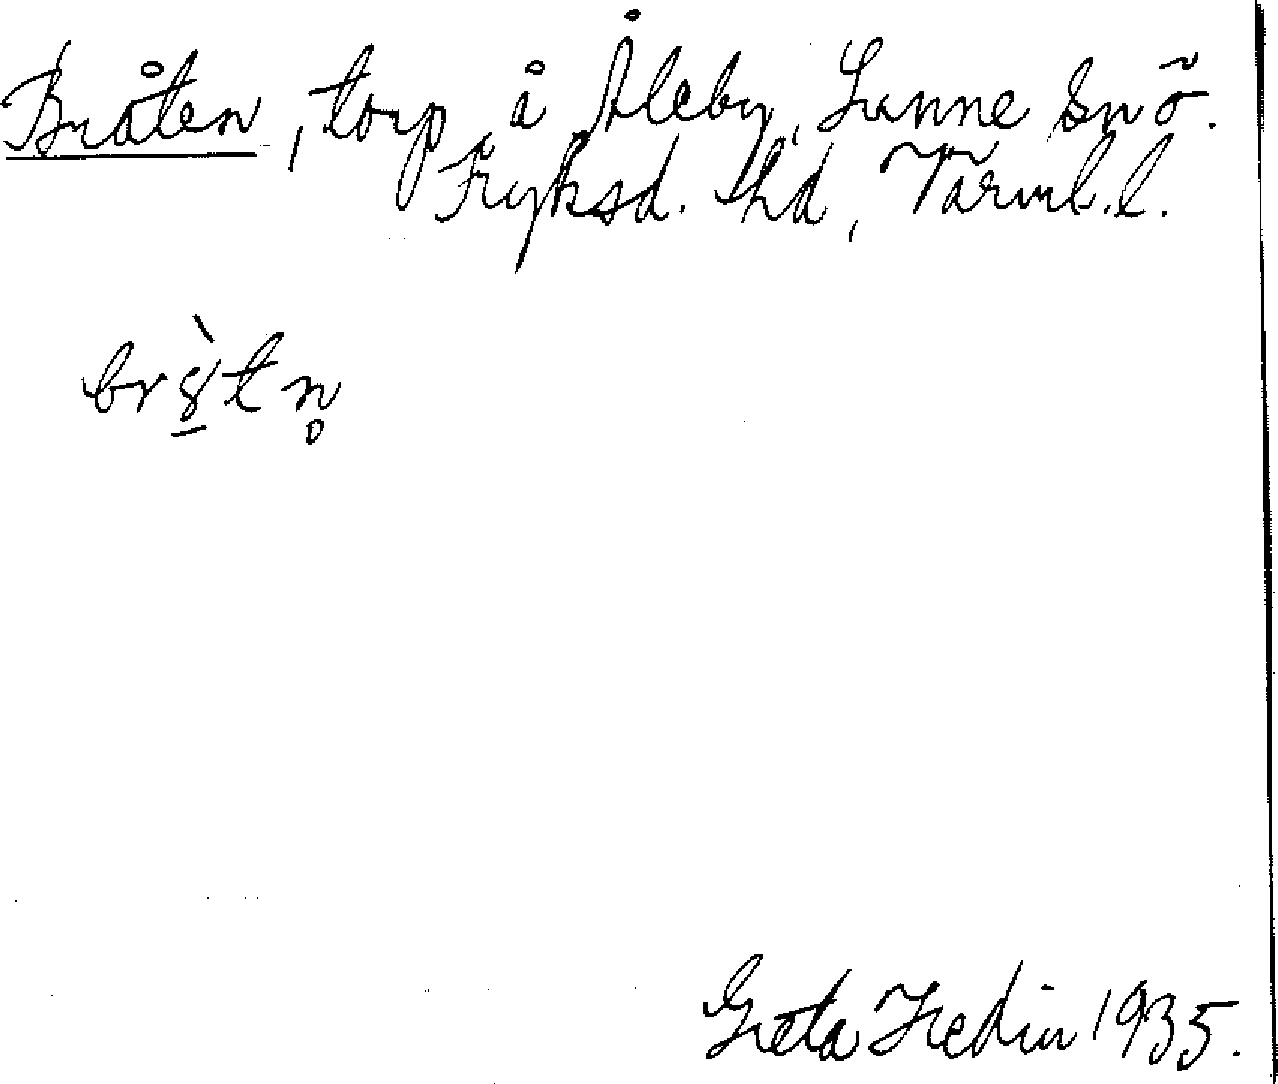 Bråten, torp å Åleby, Lunne sn ö.
Fryksd. hd, Värml. l.
brṑtn̥
Greta Hedin 1935.